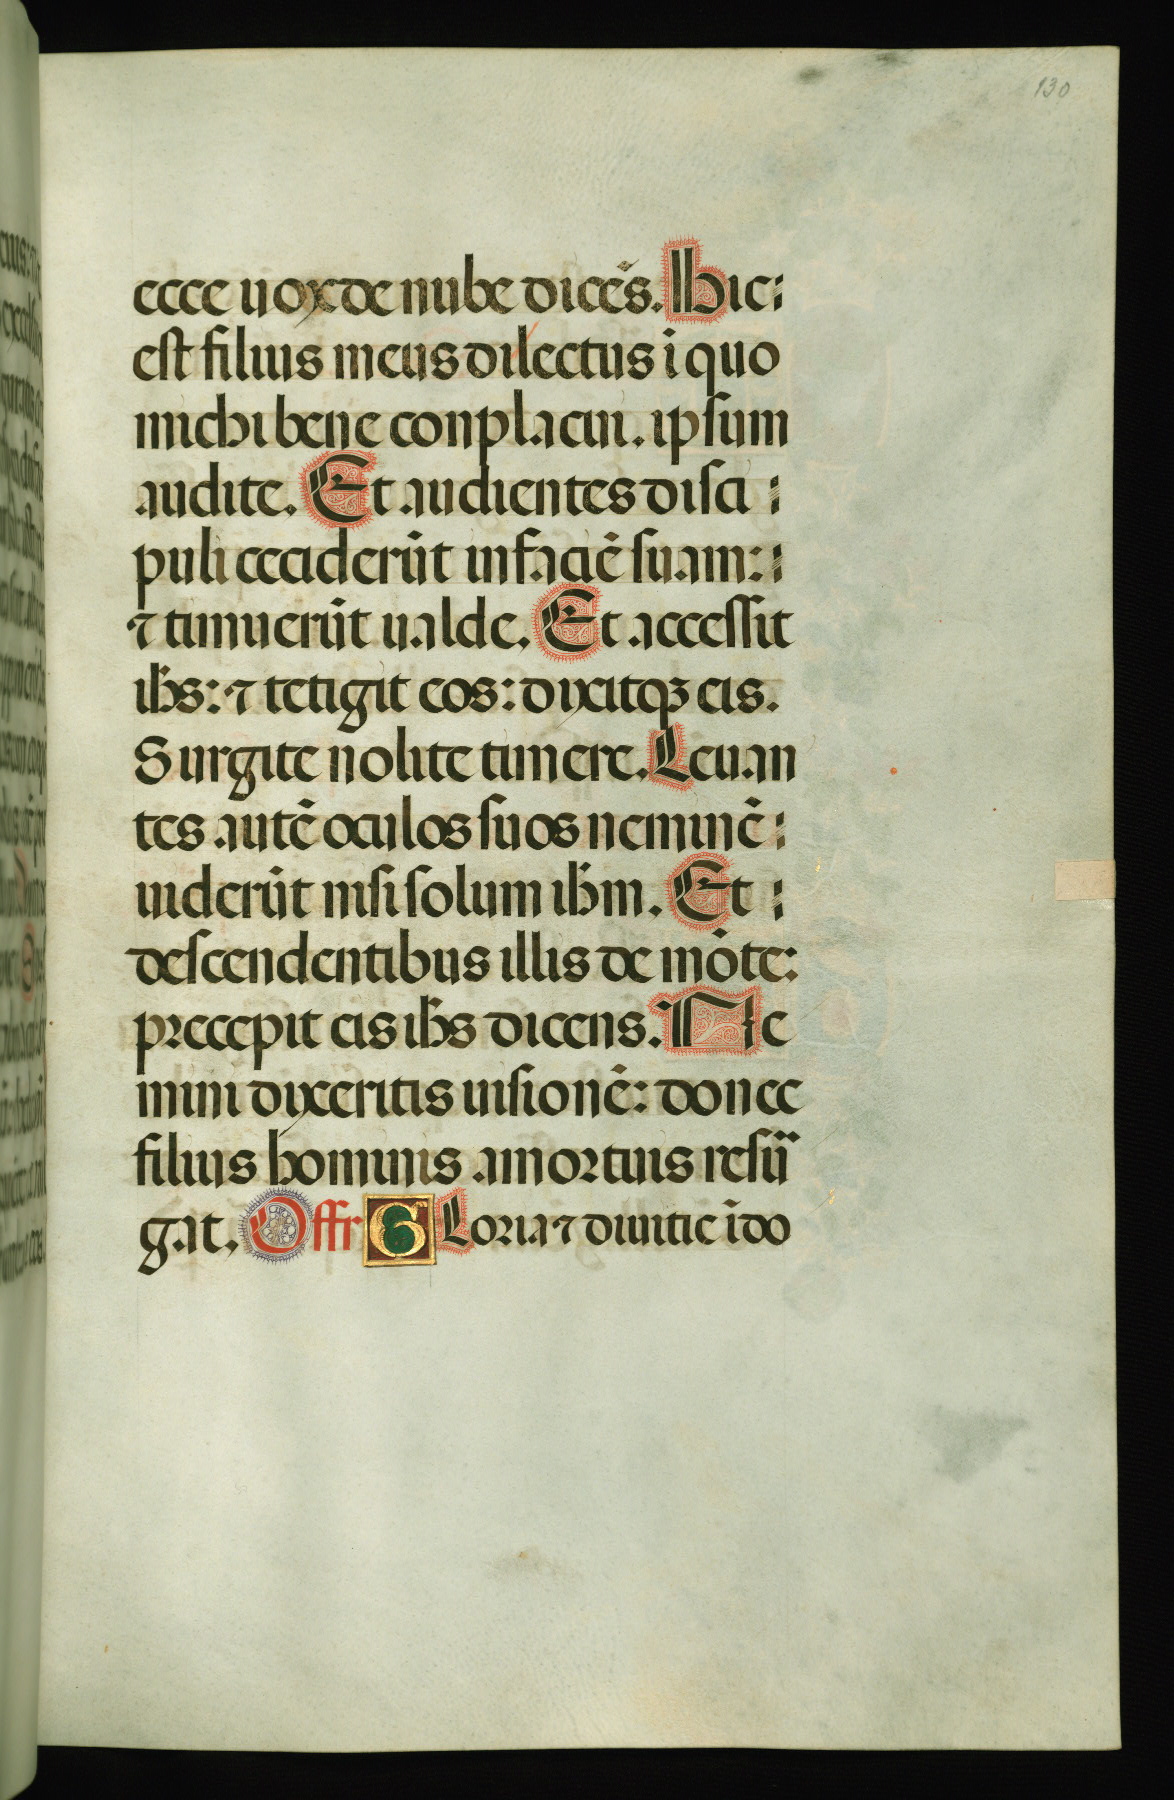 130
ecce uox de nube dicēs. Hic:
est filius meus dilectus ī quo
michi bene conplacui. ipsum
audite. Et audientes disci:
puli ceciderūt in faciē suam::
⁊ timuerūt ualde. Et accessit
ihs: ⁊ tetigit eos: dixitqꝫ eis.
Surgite nolite timere. Leuan
tes autē oculos suos neminē:
uiderūt nisi solum ihm. Et:
descendentibus illis de mōte:
precepit eis ihs dicens. Ne
mini dixeritis uisionē: donec
filius hominis amortuis resu
gat. Offr GLoria ⁊ diuitie ī do